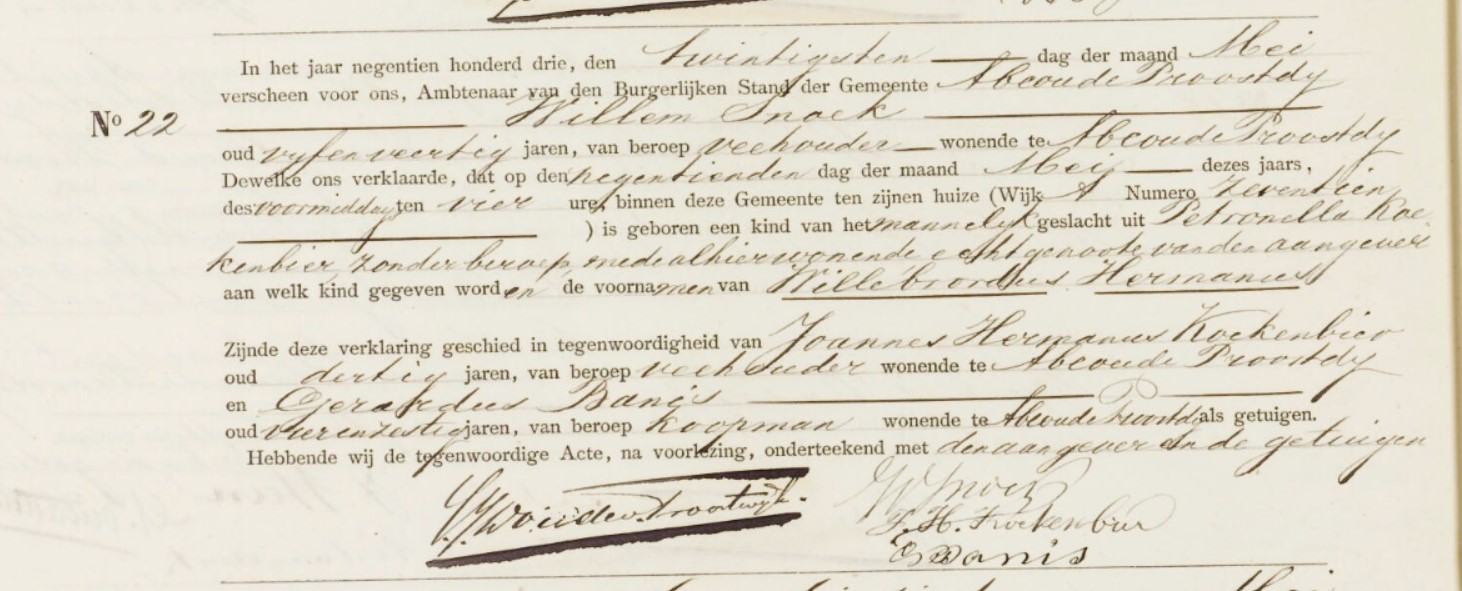 In het jaar negentien honderd drie, den twintigsten dag der maand Mei
verscheen voor ons, Ambtenaar van den Burgerlijken Stand der Gemeente Abcoude Proostdy
No 22 Willem Snoek
oud vyfenveertig jaren, van beroep veehouder wonende te Abcoude Proostdy
Dewelke ons verklaarde, dat op den negentienden dag der maand Mei dezes jaars,
des voormiddag ten vier ure, binnen deze Gemeente ten zijnen huize (Wijk A Numero zeventien
) is geboren een kind van het mannelyk geslacht uit Petronella Koe
kenbier, zonder beroep, mede alhier wonende echtgenoote van den aangever
aan welk kind gegeven worden de voornamen van Willebrordus Hermanus
Zijnde deze verklaring geschied in tegenwoordigheid van Joannes Hermanus Kockenbier
oud dertig jaren, van beroep veehouder wonende te Abcoude Proostdy
en Gerardus Banis
oud vierenzestig jaren, van beroep koopman wonende te Abcoude Proostdy als getuigen.
Hebbende wij de tegenwoordige Acte, na voorlezing, onderteekend met den aangever en de getuigen
W Snoek
J. H. Kockenbier
G Banis